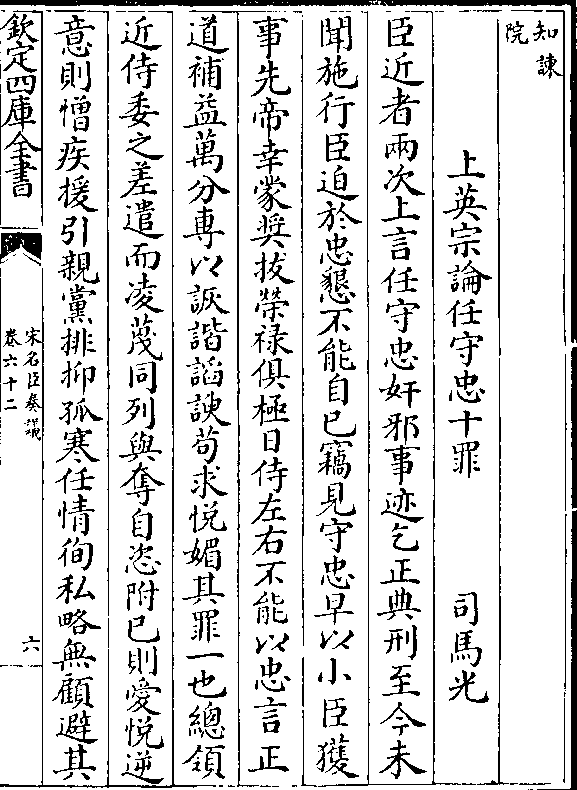 知諫
院
上英宗論任守忠十罪 司馬光
臣近者兩次上言任守忠奸邪事迹乞正典刑至今未
聞施行臣迫於忠懇不能自已竊見守忠早以小臣獲
事先帝幸蒙奬拔榮祿俱極日侍左右不能以忠言正
道補益萬分專以詼諧謟諛苟求悦媚其罪一也總領
近侍委之差遣而凌蔑同列與奪自恣附已則愛悦逆
意則憎疾援引親黨排抑孤寒任情徇私略無顧避其
欽定四庫全書
宋名臣奏議
卷六十二
六